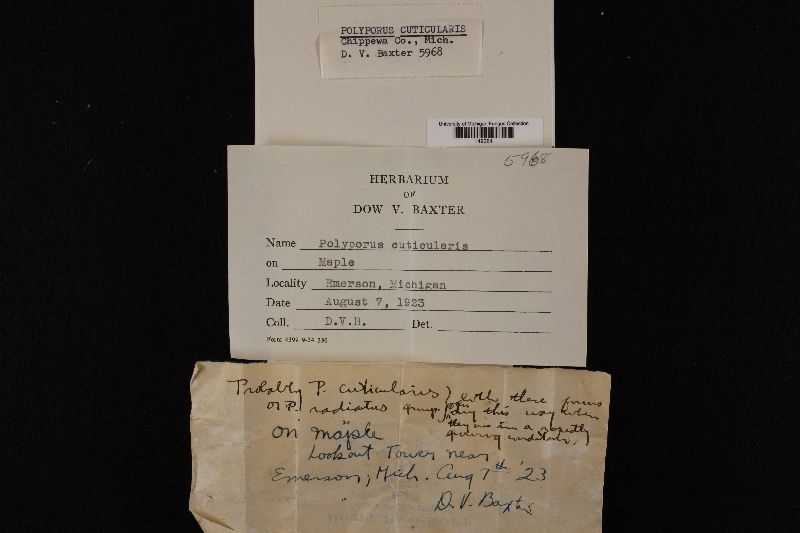 POLYPORUS CUTICULARIS
Chippewa Co., Mich.
D. V. Baxter 5968
University of Michigan Fungus Collection
5968
HERBARIUM
OF
DOW V. BAXTER
Name Polyporus cuticularis
on Maple
Locality Emerson, Michigan
Date August 7, 1923
Coll. D.V.B. Det.
Probably P. cuticularis } both these forms
or P. radiatus group this way when
they are in a rapidly
growing condition.
on maple
Lookout Tower near
Emerson, Mich. Aug 7th '23
D. V. Baxter